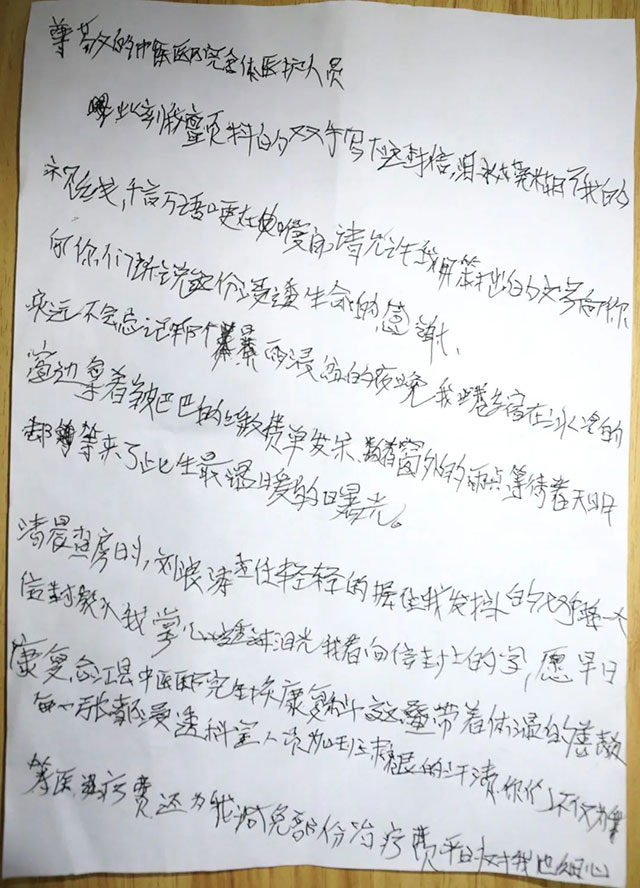 尊敬的中医医院全体医护人员
此刻我颤抖的双手写下这封信,泪水模糊了我的
视线,千言万语哽在喉间,请允许我用笨拙的文字向你
们诉说这份浸透生命的感谢、
永远不会忘记那个暴雨的夜晚我蜷缩在冰冷的
窗边拿着皱巴巴的缴费单发呆、数着窗外的雨点等待着天明
却等来了此生最温暖的曙光。
清晨查房时,刘主任轻轻的握住我发抖的双手将一个
信封放入我掌心透过泪光我看向信封上的字,愿早日
康复,合江县中医医院针灸康复科这叠带着体温的善款
每一张都浸透科室人员加班的汗渍,你们不仅为我
筹医疗费还为我减免部份治疗费平日对我也细心